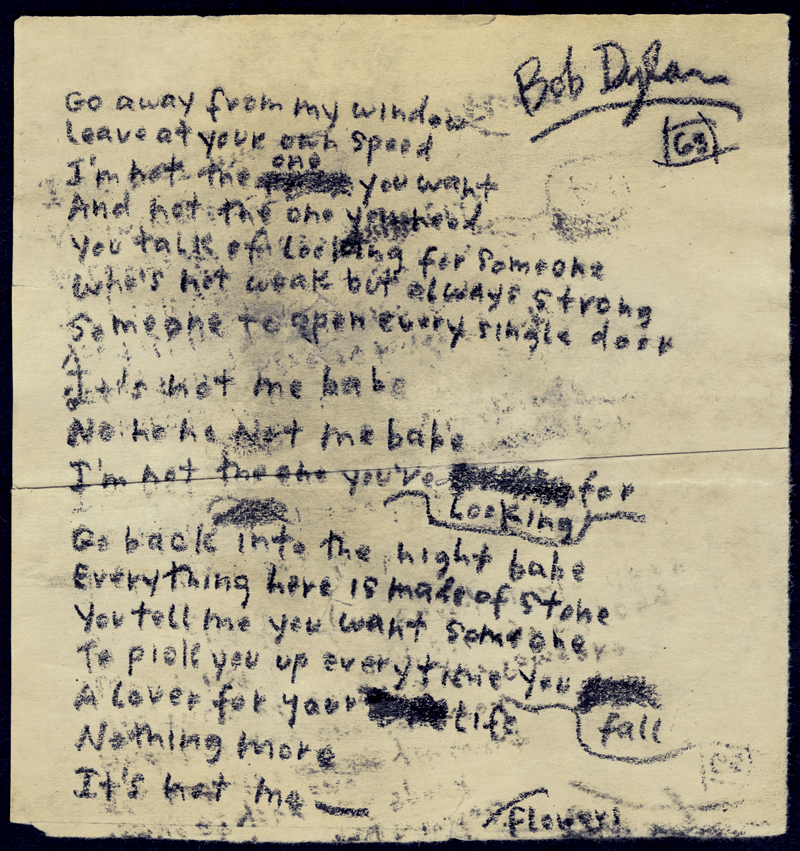 Bob Dylan
63
Go away from my window
Leave at your own speed
I'm not the one you want
And not the one you need
You talk of looking for someone
Who's not weak but always strong
Someone to open every single door
It's not me babe
No no no Not me babe
I'm not the one you've looking for
Go back into the night babe
Everything here is made of stone
You tell me you want someone
To pick you up every time you fall
A lover for your life
Nothing more
It's not me
Flowers